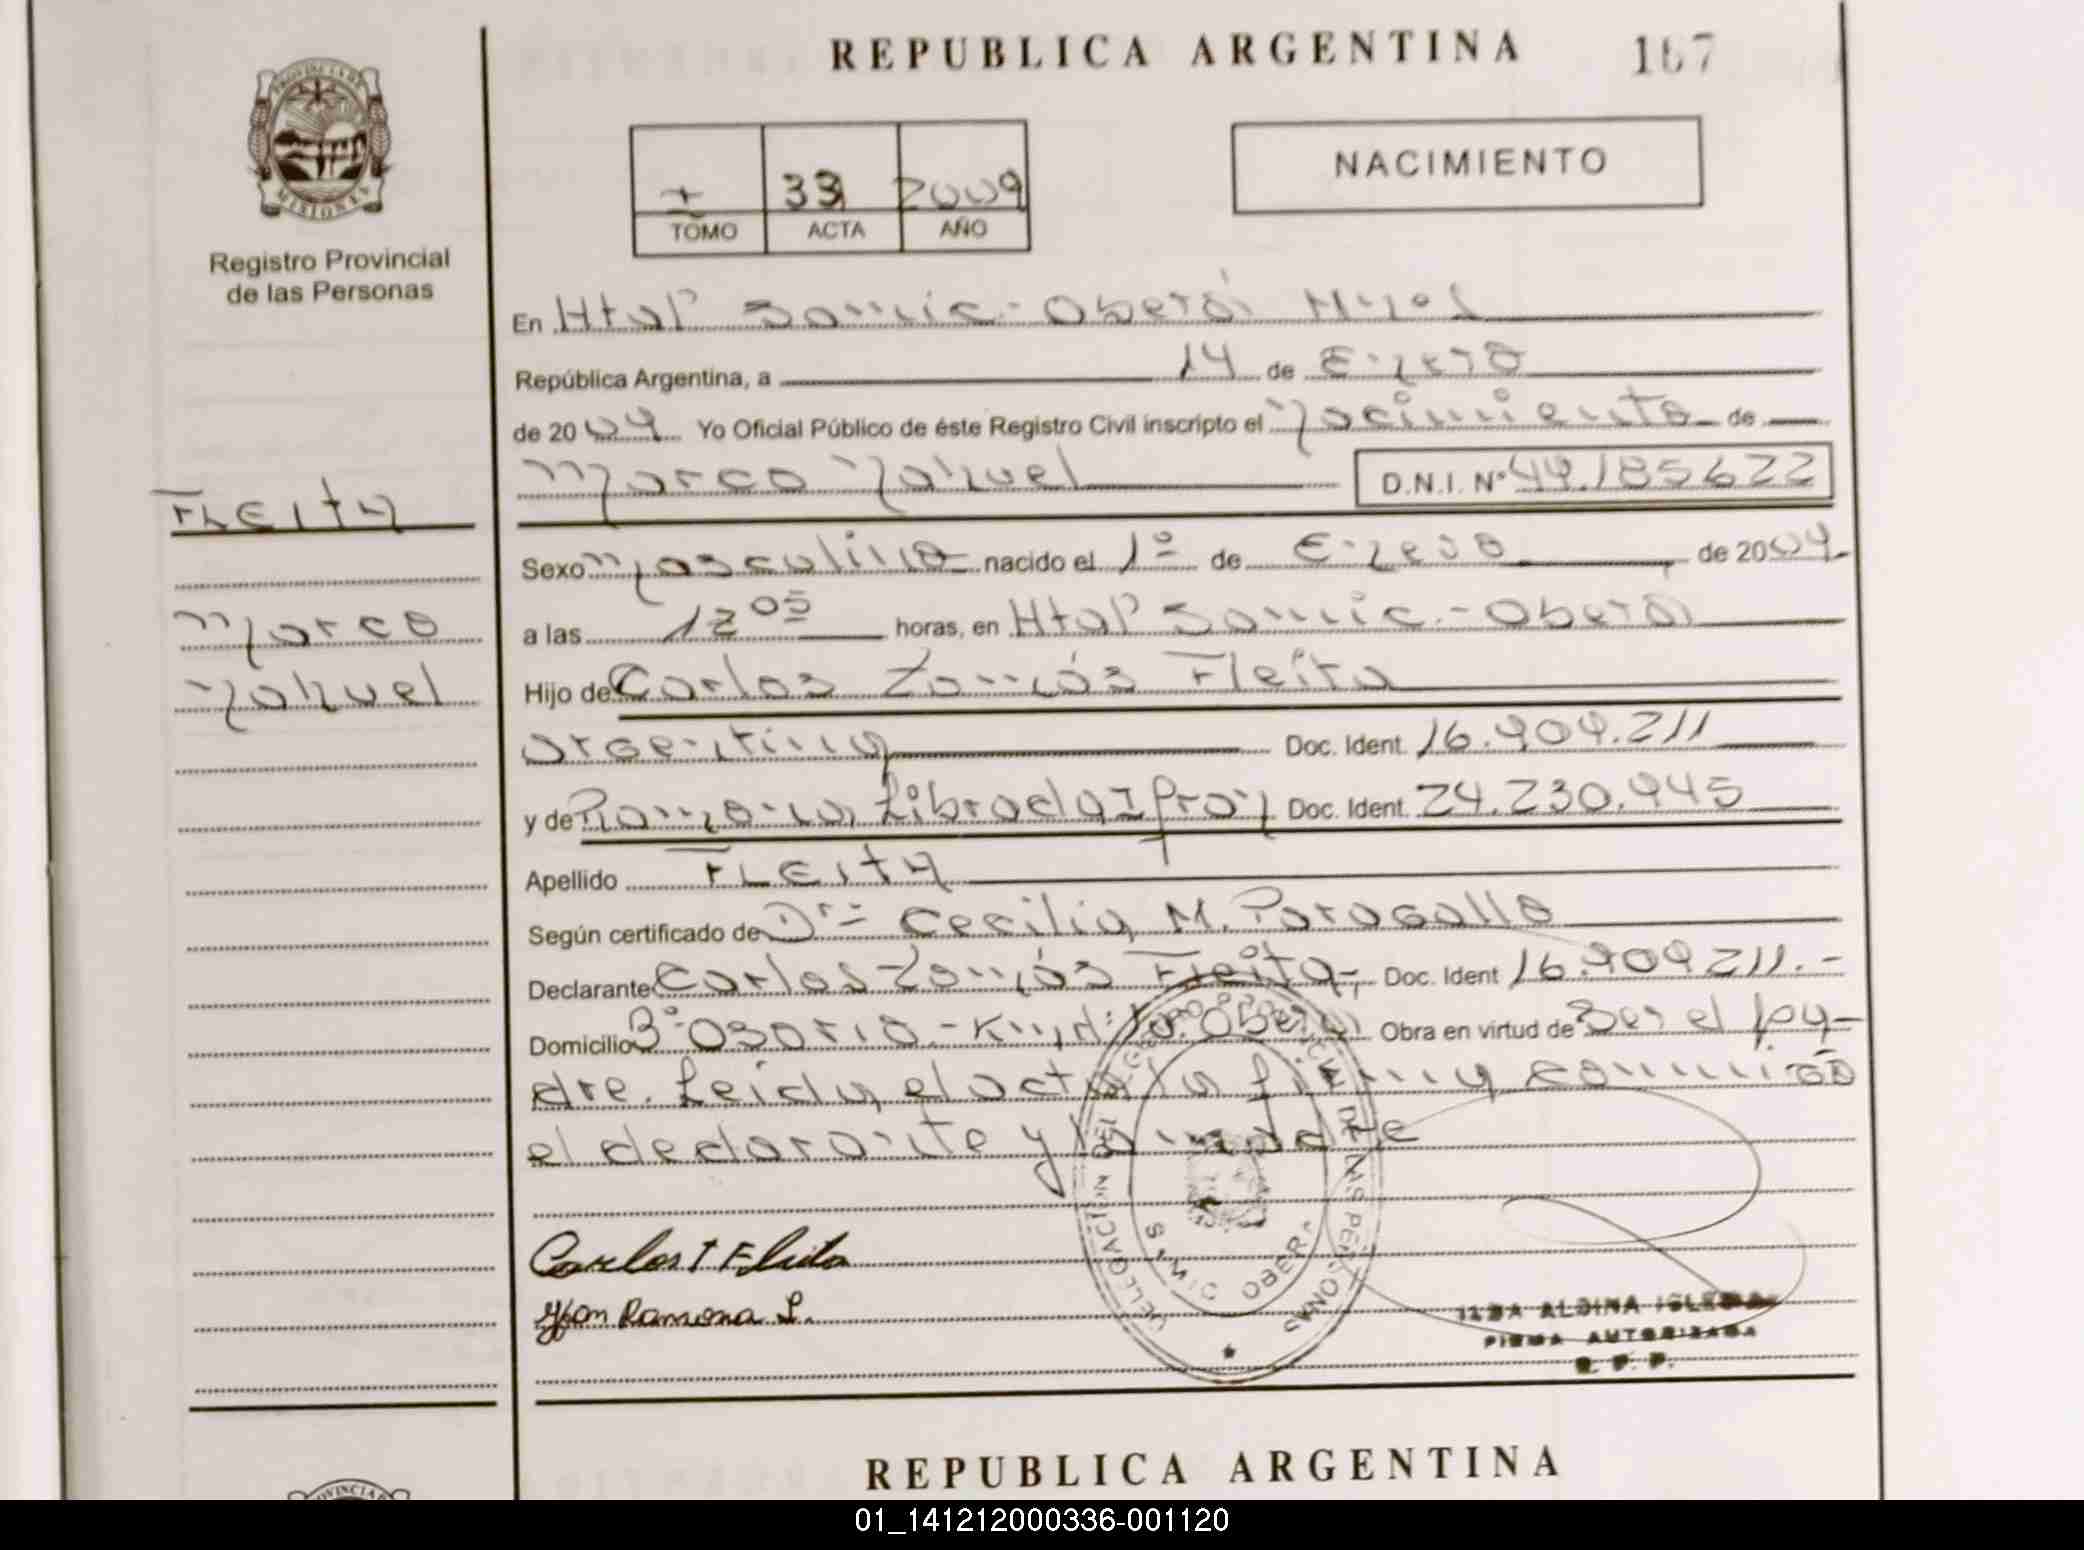 REPUBLICA ARGENTINA 167
PROVINCIA DE
MISIONES
Registro Provincial
de las Personas
33 2009
TOMO ACTA AÑO
NACIMIENTO
En Htal Samic - Oberá Mnes
República Argentina, a 14 de Enero
de 2009 Yo Oficial Público de éste Registro Civil inscripto el Nacimiento de
Marco Nahuel D.N.I. Nº 49.185622
FLEITA
Sexo Masculino nacido el 1º de Enero de 2009.
Marco
a las 12 05 horas, en Htal Samic - Oberá
Nahuel
Hijo de Carlos Tomás Fleita
argentina Doc. Ident. 16.909.211
y de Ramona Librada Ifran Doc. Ident. 24.230.945
Apellido FLEITA
Según certificado de Dra Cecilia M. Paragallo
Declarante Carlos Tomás Fleita, Doc. Ident 16.909211.-
Domicilio Bº Osorio - Oberá Obra en virtud de Ser el pa-
dre. Leida el acta la firma conmigo
el declarante y la madre
Carlos T Fleita
Ifran Ramona L.
DELEGACION DEL REGISTRO PROVINCIAL DE LAS PERSONAS
SAMIC OBERA
ILDA ALBINA IGLESIAS
FIRMA AUTORIZADA
R. P. P.
REPUBLICA ARGENTINA
PROVINCIA
01_141212000336-001120